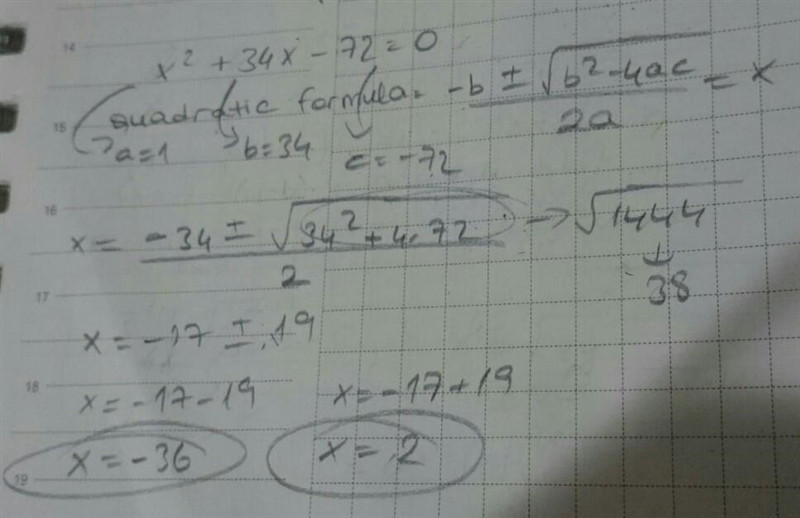 14
x² + 34x - 72 = 0
15
quadratic formula = -b ± √b² - 4ac / 2a = x
a=1 b=34 c=-72
16
x = -34 ± √34² + 4.72 / 2 → √1444
38
17
x = -17 ± 19
18
x = -17 - 19 x = -17 + 19
19
x = -36 x = 2